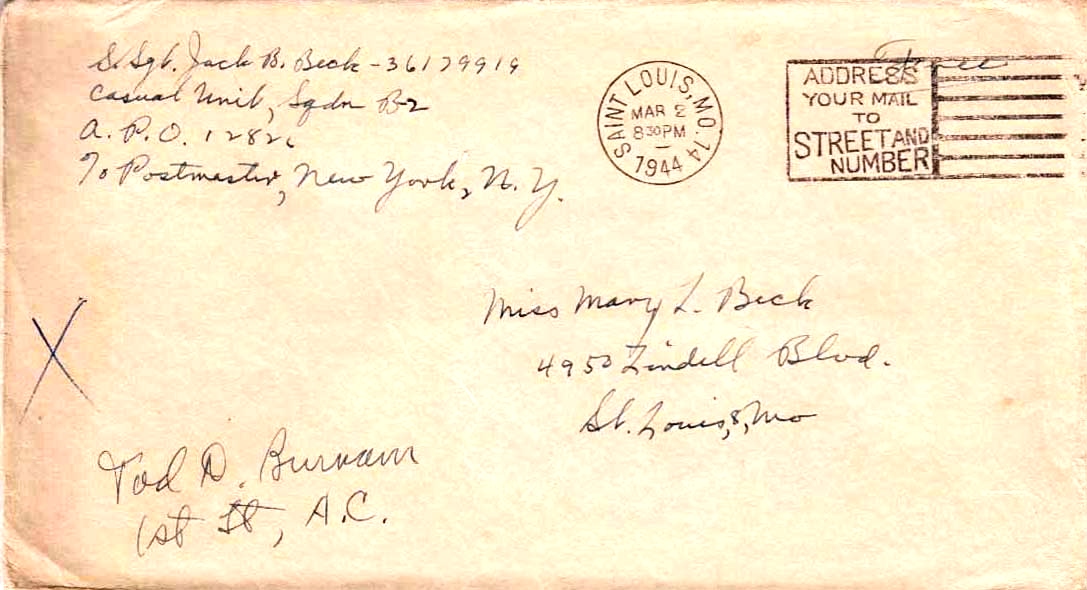 S. Sgt. Jack B. Beck - 36179919
Casual Unit, Sqdn B-2
A.P.O. 12826
% Postmaster, New York, N.Y.
SAINT LOUIS, MO. 14
MAR 2
8 30 PM
1944
Free
ADDRESS
YOUR MAIL
TO
STREET AND
NUMBER
Miss Mary L. Beck
4950 Lindell Blvd.
St. Louis, 8, Mo
X
Tod D. Burnam
1st Lt, A.C.